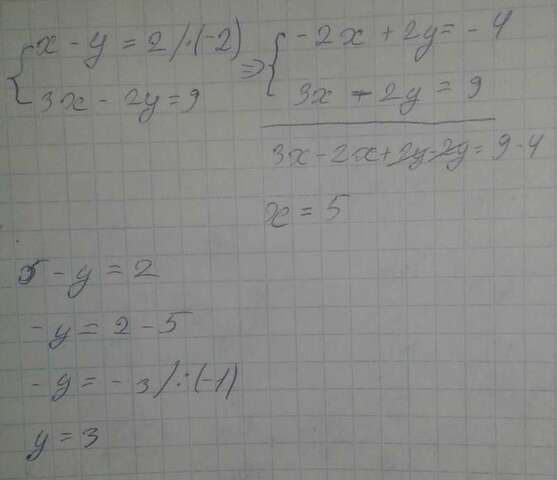 { x - y = 2 /·(-2)
3x - 2y = 9
=> { -2x + 2y = - 4
3x - 2y = 9
3x - 2x + 2y - 2y = 9 - 4
x = 5
5 - y = 2
- y = 2 - 5
- y = - 3 /:(-1)
y = 3